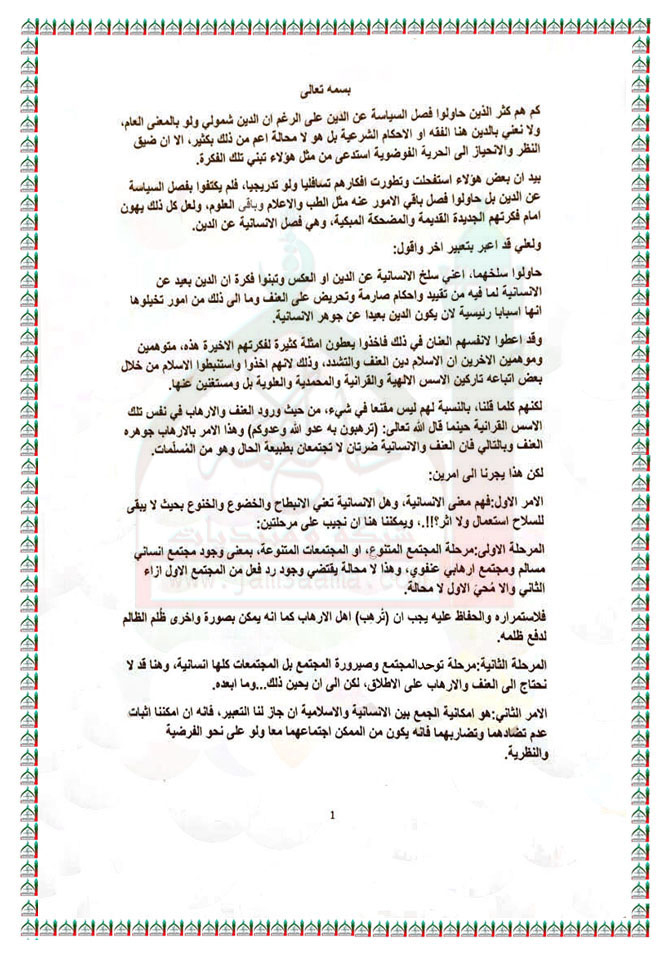 بسمه تعالى
كم هم كثر الذين حاولوا فصل السياسة عن الدين على الرغم ان الدين شمولي ولو بالمعنى العام،
ولا نعني بالدين هنا الفقه او الاحكام الشرعية بل هو لا محالة اعم من ذلك بكثير، الا ان ضيق
النظر والانحياز الى الحرية الفوضوية استدعى من مثل هؤلاء تبني تلك الفكرة.
بيد ان بعض هؤلاء استفحلت وتطورت افكارهم تسافليا ولو تدريجيا، فلم يكتفوا بفصل السياسة
عن الدين بل حاولوا فصل باقي الامور عنه مثل الطب والاعلام وباقي العلوم، ولعل كل ذلك يهون
امام فكرتهم الجديدة القديمة والمضحكة المبكية، وهي فصل الانسانية عن الدين.
ولعلي قد اعبر بتعبير اخر واقول:
حاولوا سلخهما، اعني سلخ الانسانية عن الدين او العكس وتبنوا فكرة ان الدين بعيد عن
الانسانية لما فيه من تقييد واحكام صارمة وتحريض على العنف وما الى ذلك من امور تخيلوها
انها اسبابا رئيسية لان يكون الدين بعيدا عن جوهر الانسانية.
وقد اعطوا لانفسهم العنان في ذلك فاخذوا يعطون امثلة كثيرة لفكرتهم الاخيرة هذه، متوهمين
وموهمين الاخرين ان الاسلام دين العنف والتشدد، وذلك لانهم اخذوا واستنبطوا الاسلام من خلال
بعض اتباعه تاركين الاسس الالهية والقرانية والمحمدية والعلوية بل ومستغنين عنها.
لكنهم كلما قلنا، بالنسبة لهم ليس مقنعا في شيء، من حيث ورود العنف والارهاب في نفس تلك
الاسس القرانية حينما قال الله تعالى: (ترهبون به عدو الله وعدوكم) وهذا الامر بالارهاب جوهره
العنف وبالتالي فان العنف والانسانية ضرتان لا تجتمعان بطبيعة الحال وهو من المُسلّمات.
لكن هذا يجرنا الى امرين:
الامر الاول:فهم معنى الانسانية، وهل الانسانية تعني الانبطاح والخضوع والخنوع بحيث لا يبقى
للسلاح استعمال ولا اثر؟!!.، ويمكننا هنا ان نجيب على مرحلتين:
المرحلة الاولى:مرحلة المجتمع المتنوع، او المجتمعات المتنوعة، بمعنى وجود مجتمع انساني
مسالم ومجتمع ارهابي عنفوي، وهذا لا محالة يقتضي وجود رد فعل من المجتمع الاول ازاء
الثاني والا مُحيَ الاول لا محالة.
فلاستمراره والحفاظ عليه يجب ان (تُرهب) اهل الارهاب كما انه يمكن بصورة واخرى ظُلم الظالم
لدفع ظلمه.
المرحلة الثانية:مرحلة توحدالمجتمع وصيرورة المجتمع بل المجتمعات كلها انسانية، وهنا قد لا
نحتاج الى العنف والارهاب على الاطلاق، لكن الى ان يحين ذلك...وما ابعده.
الامر الثاني:هو امكانية الجمع بين الانسانية والاسلامية ان جاز لنا التعبير، فانه ان امكننا اثبات
عدم تضادهما وتضاربهما فانه يكون من الممكن اجتماعهما معا ولو على نحو الفرضية
والنظرية.
1